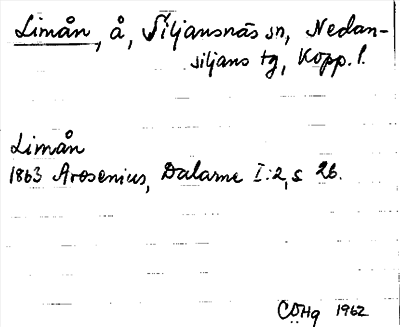 Limån, å, Siljansnäs sn, Nedan-
siljans tg, Kopp. l.
Limån
1863 Arosenius, Dalarne I:2, s 26.
CÖHg 1962